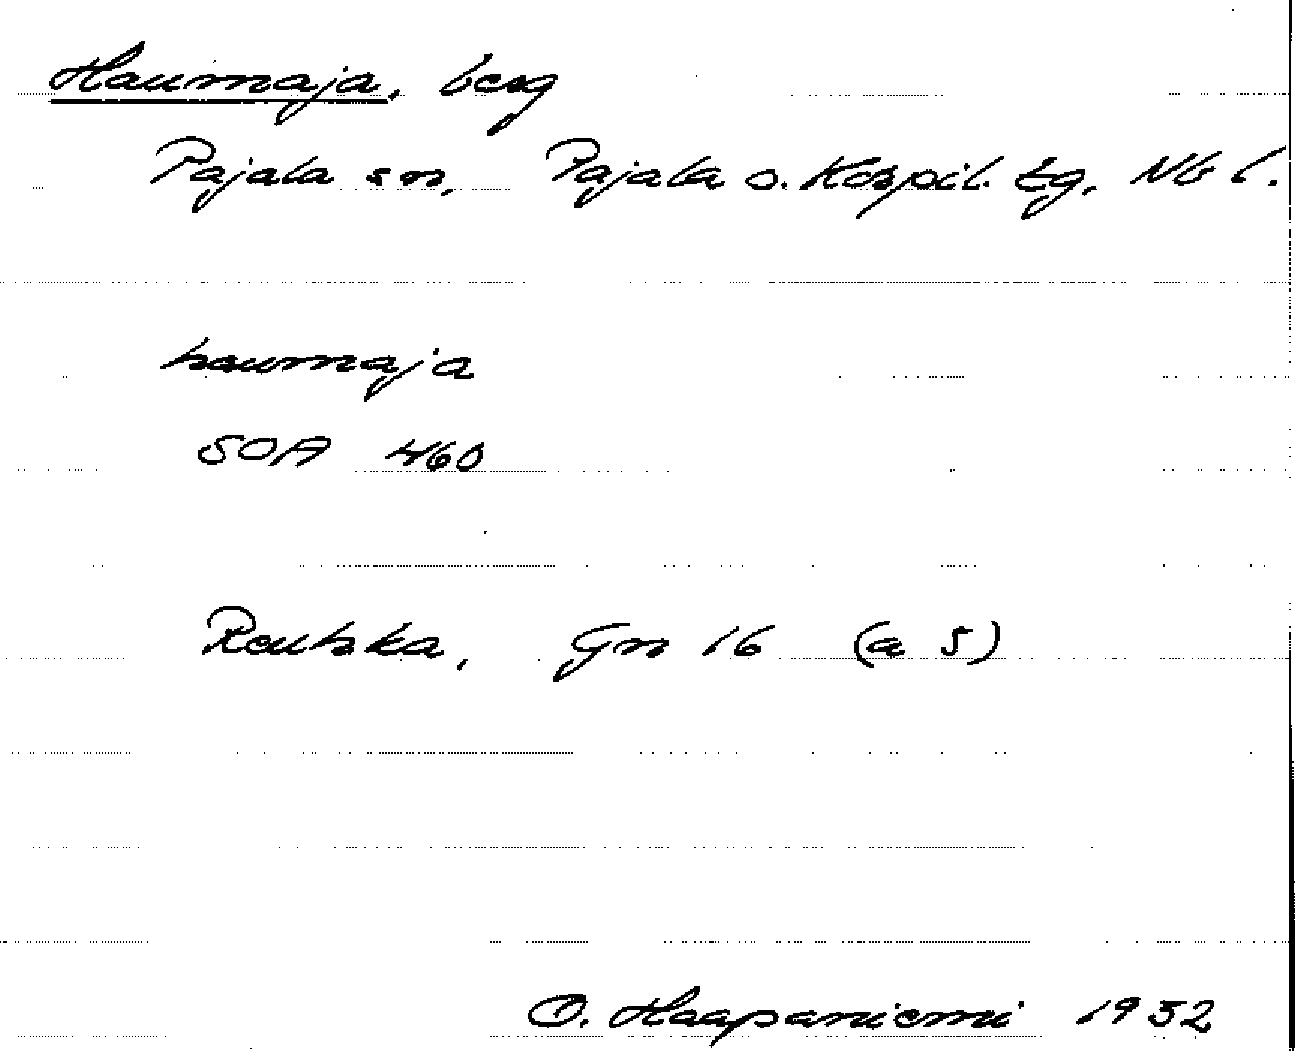 Haurmaja, berg
Pajala sn, Pajala o. Korpil. tg, Nb l.
haurmaja
SOA 460
Reutska, Gn 16 (a 5)
O. Haapaniemi 1932